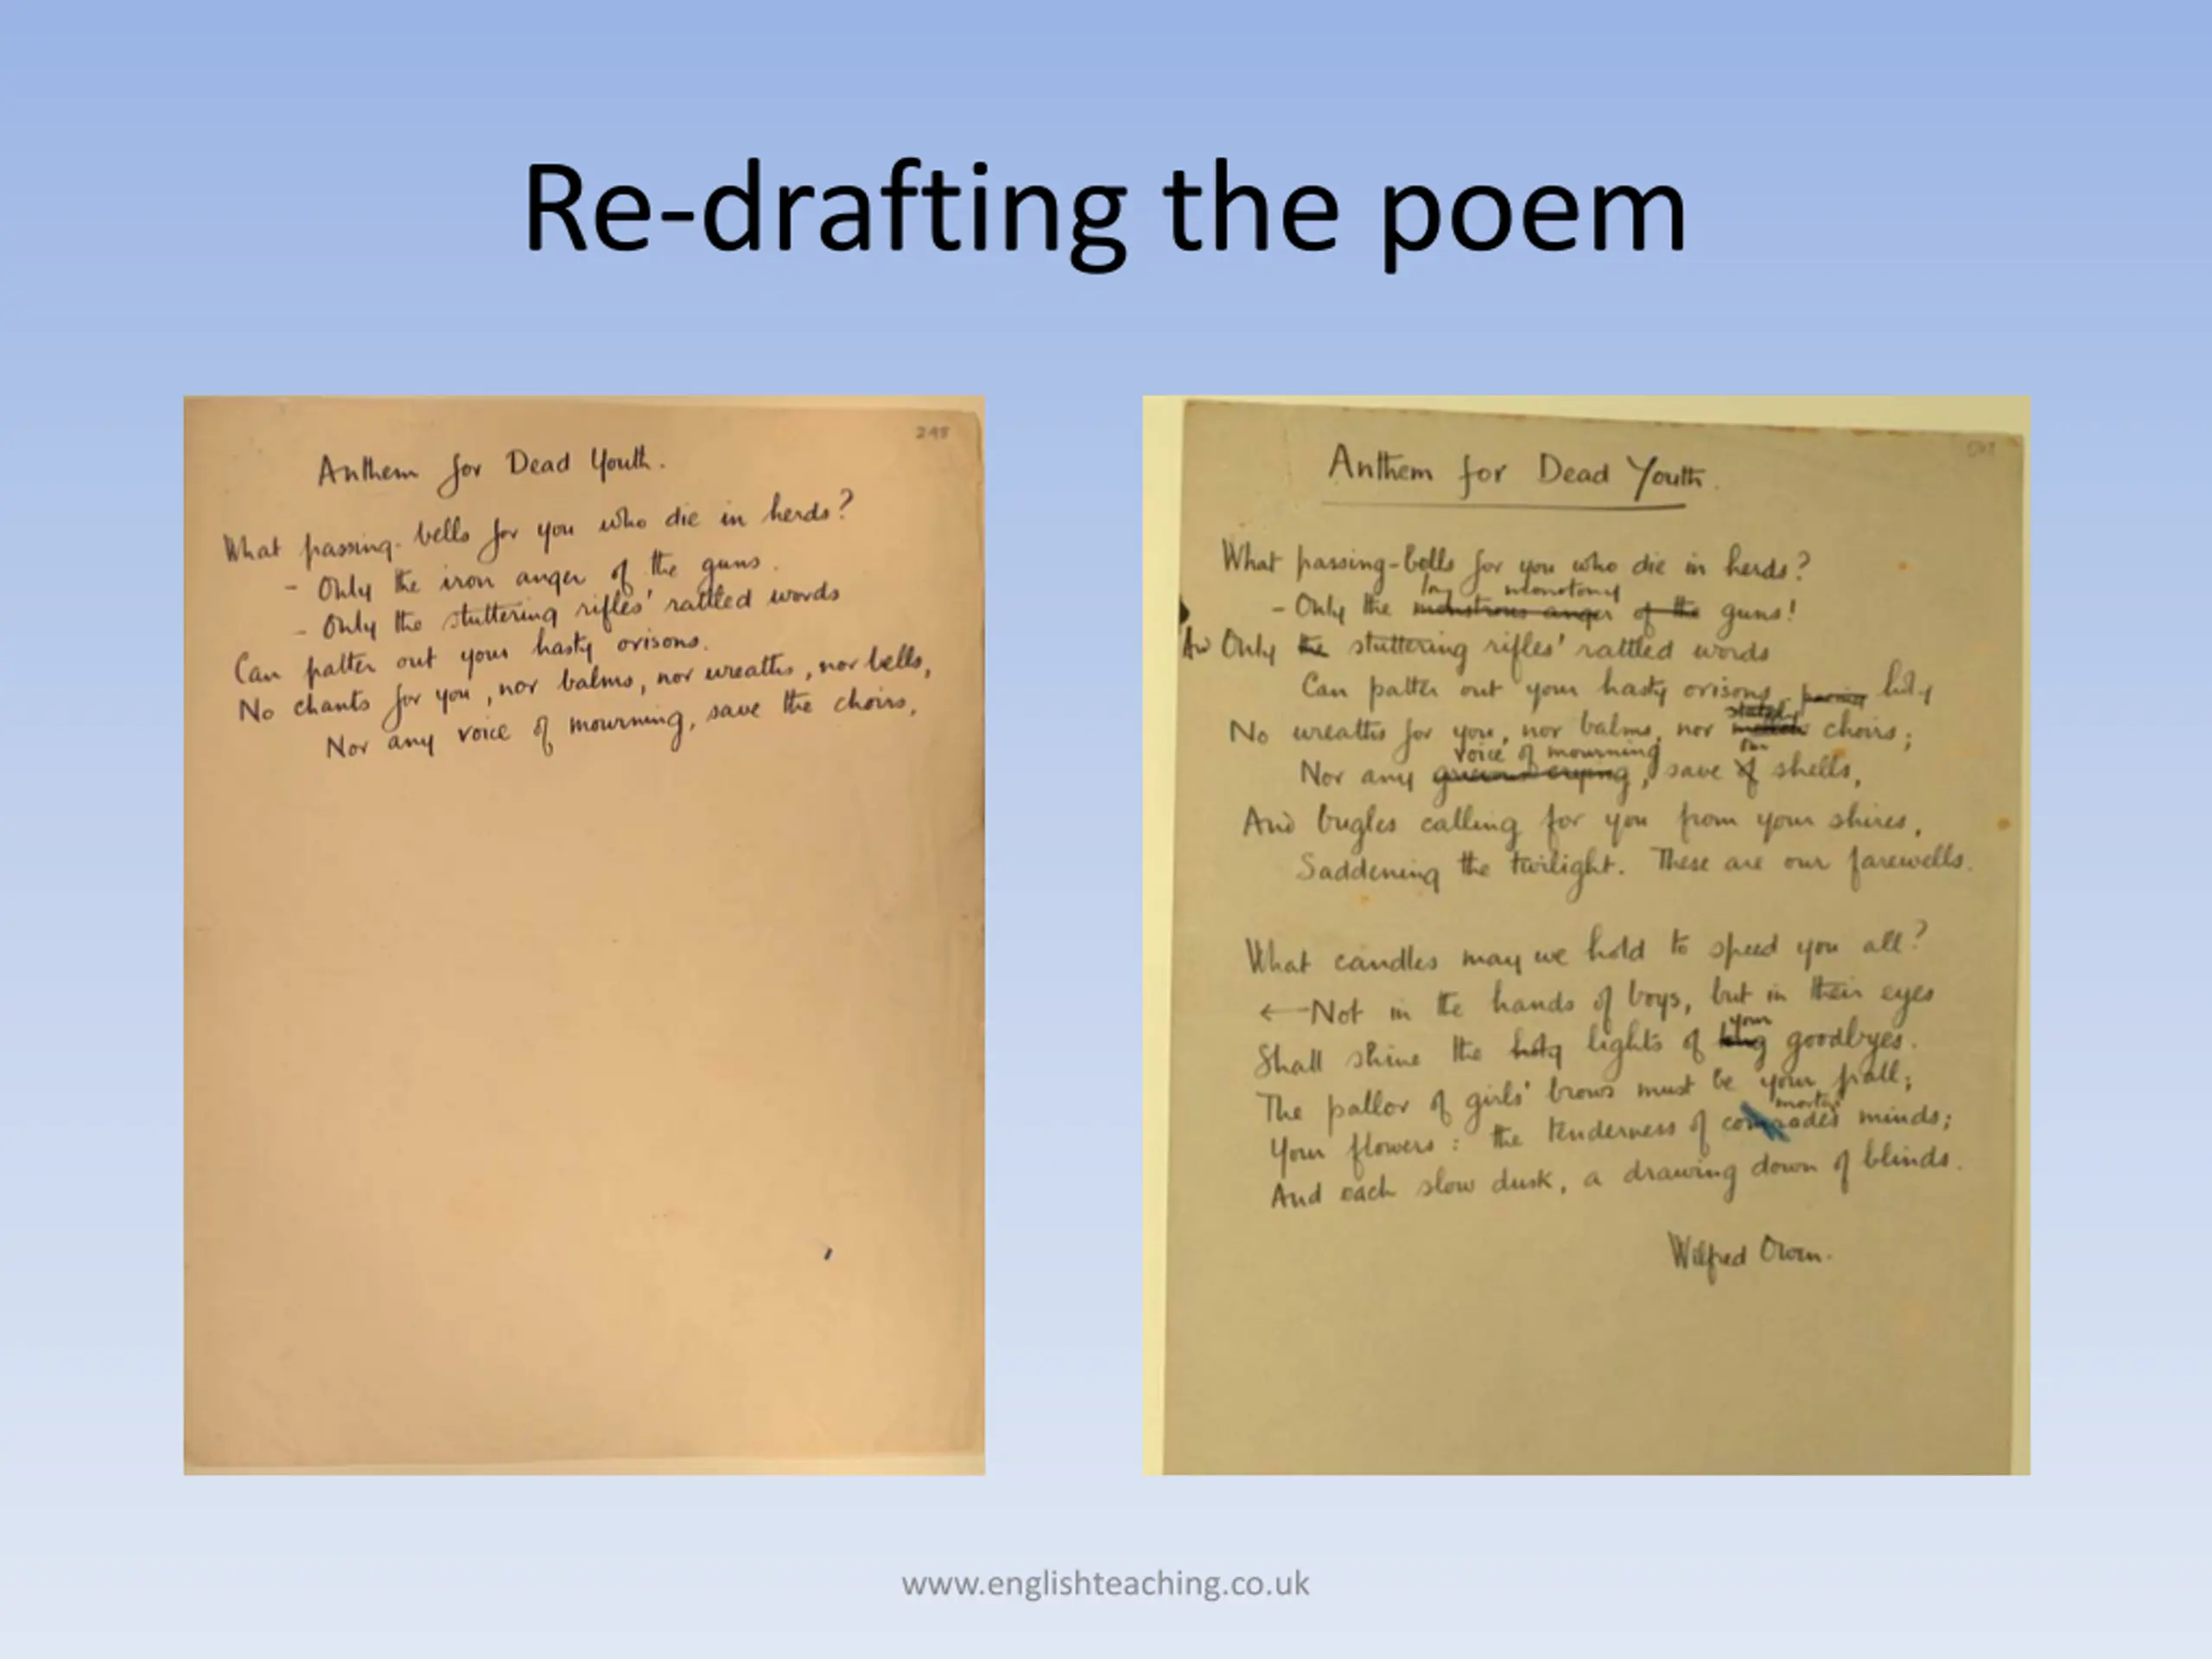 Re-drafting the poem
298
Anthem for Dead Youth.
What passing-bells for you who die in herds?
- Only the iron anger of the guns.
- Only the stuttering rifles' rattled words
Can patter out your hasty orisons.
No chants for you, nor balms, nor wreaths, nor bells,
Nor any voice of mourning, save the choirs,
Anthem for Dead Youth.
What passing-bells for you who die in herds?
long monotony
- Only the monstrous anger of the guns!
And Only the stuttering rifles' rattled words
Can patter out your hasty orisons
stately
No wreaths for you, nor balms, nor choirs;
voice of mourning our
Nor any , save of shells,
And bugles calling for you from your shires,
Saddening the twilight. These are our farewells.
What candles may we hold to speed you all?
←Not in the hands of boys, but in their eyes
your
Shall shine the holy lights of long goodbyes.
The pallor of girls' brows must be your pall;
mortal
Your flowers: the tenderness of comrades minds;
And each slow dusk, a drawing down of blinds.
Wilfred Owen.
www.englishteaching.co.uk